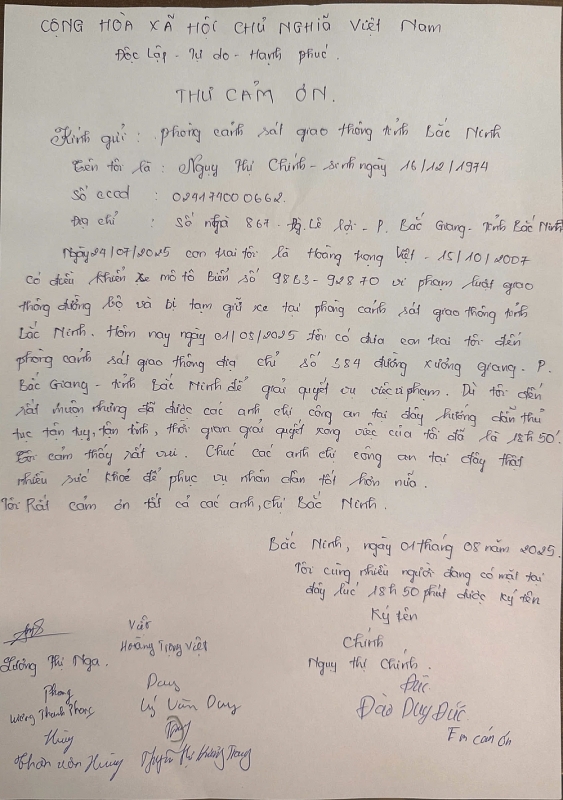 CỘNG HÒA XÃ HỘI CHỦ NGHĨA Việt Nam
Độc lập - Tự do - Hạnh phúc.
THƯ CẢM ƠN.
Kính gửi : phòng cảnh sát giao thông tỉnh Bắc Ninh
Tên tôi là : Nguy Thị Chính - sinh ngày 16/12/1974
Số cccd : 024174000662.
Địa chỉ : Số nhà 867 - Đg. Lê Lợi - P. Bắc Giang - tỉnh Bắc Ninh
Ngày 24/07/2025 con trai tôi là Hoàng trọng Việt - 15/10/2007
có điều khiển xe mô tô Biển số 98B3-92870 vi phạm luật giao
thông đường bộ và bị tạm giữ xe tại phòng cảnh sát giao thông tỉnh
Bắc Ninh. Hôm nay ngày 01/08/2025 tôi có đưa con trai tôi đến
phòng cảnh sát giao thông địa chỉ số 384 đường xương giang - P.
Bắc Giang - tỉnh Bắc Ninh để giải quyết vụ việc vi phạm. Dù tôi đến
rất muộn nhưng đã được các anh chị công an tại đây hướng dẫn thủ
tục tận tụy, tận tình, thời gian giải quyết xong việc của tôi đã là 18h50'.
Tôi cảm thấy rất vui. Chúc các anh chị công an tại đây thật
nhiều sức khoẻ để phục vụ nhân dân tốt hơn nữa.
Tôi Rất cảm ơn tất cả các anh, chị Bắc Ninh.
Bắc Ninh, ngày 01 tháng 08 năm 2025.
Tôi cùng nhiều người đang có mặt tại
đây lúc 18h50 phút được ký tên
Ký tên
Chính
Nguy thị Chính.
Việt
Hoàng Trọng Việt
Lương Thị Nga.
Đức
Đào Duy Đức
Em cảm ơn
Phong
Lương Thanh Phong
Duy
Lý Văn Duy
Hùng
Văn Hùng
Nguyễn Thị Trang